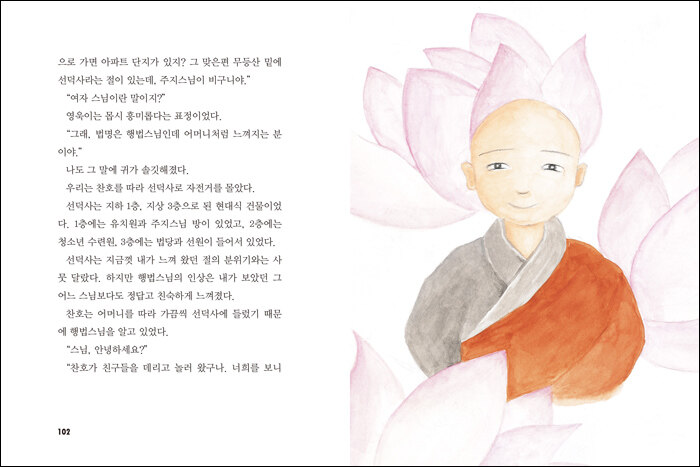 으로 가면 아파트 단지가 있지? 그 맞은편 무등산 밑에
선덕사라는 절이 있는데, 주지스님이 비구니야.”
“여자 스님이란 말이지?”
영욱이는 몹시 흥미롭다는 표정이었다.
“그래, 법명은 행법스님인데 어머니처럼 느껴지는 분
이야.”
나도 그 말에 귀가 솔깃해졌다.
우리는 찬호를 따라 선덕사로 자전거를 몰았다.
선덕사는 지하 1층, 지상 3층으로 된 현대식 건물이었
다. 1층에는 유치원과 주지스님 방이 있었고, 2층에는
청소년 수련원, 3층에는 법당과 선원이 들어서 있었다.
선덕사는 지금껏 내가 느껴 왔던 절의 분위기와는 사
뭇 달랐다. 하지만 행법스님의 인상은 내가 보았던 그
어느 스님보다도 정답고 친숙하게 느껴졌다.
찬호는 어머니를 따라 가끔씩 선덕사에 들렀기 때문
에 행법스님을 알고 있었다.
“스님, 안녕하세요?”
“찬호가 친구들을 데리고 놀러 왔구나. 너희를 보니
102